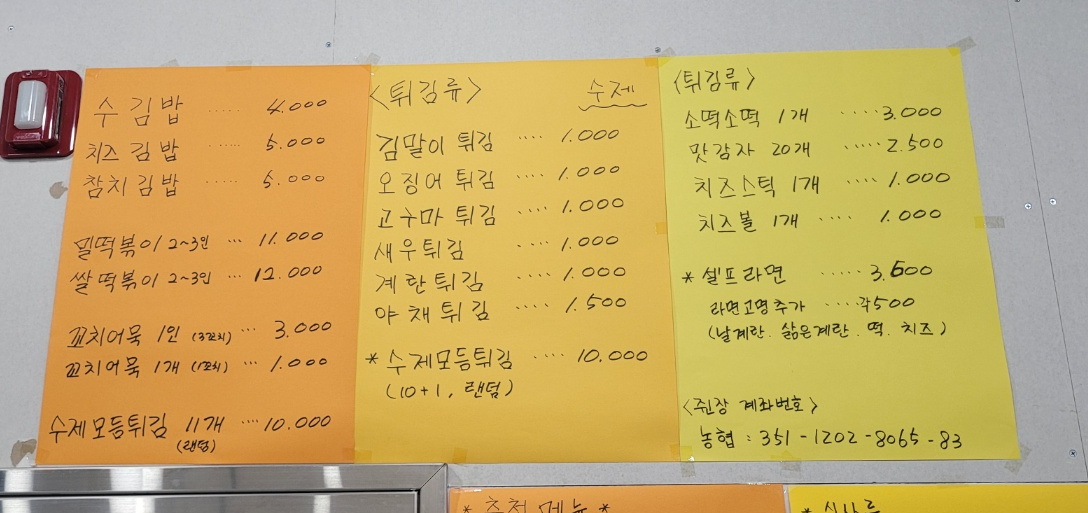 수 김밥 ..... 4.000
치즈 김밥 ..... 5.000
참치 김밥 ..... 5.000
밀떡볶이 2~3인 ... 11.000
쌀떡볶이 2~3인 ... 12.000
꼬치어묵 1인 (3꼬치) ... 3.000
꼬치어묵 1개 (1꼬치) ... 1.000
수제모듬튀김 11개 ... 10.000
(랜덤)
<튀김류> 수제
김말이 튀김 .... 1.000
오징어 튀김 .... 1.000
고구마 튀김 .... 1.000
새우튀김 .... 1.000
계란튀김 .... 1.000
야채튀김 .... 1.500
* 수제모듬튀김 .... 10.000
(10+1, 랜덤)
<튀김류>
소떡소떡 1개 .... 3.000
맛감자 20개 ..... 2.500
치즈스틱 1개 .... 1.000
치즈볼 1개 .... 1.000
* 셀프라면 ..... 3.500
라면고명추가 .... 각500
(날계란. 삶은계란. 떡. 치즈)
<쥔장 계좌번호>
농협 : 351-1202-8065-83
* 추천 메뉴 *
* 식사류